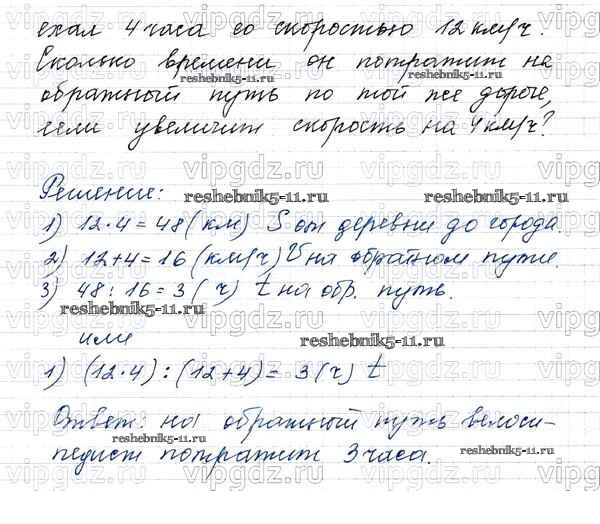 ехал 4 часа со скоростью 12 км/ч.
Сколько времени он потратит на
обратный путь по той же дороге,
если увеличит скорость на 4 км/ч?
Решение:
1) 12·4=48(км) S от деревни до города.
2) 12+4=16 (км/ч) V на обратном пути.
3) 48:16=3(ч) t на обр. путь.
или
1) (12·4):(12+4)= 3(ч) t
Ответ: на обратный путь велоси-
педист потратит 3 часа.
vipgdz.ru
reshebnik5-11.ru